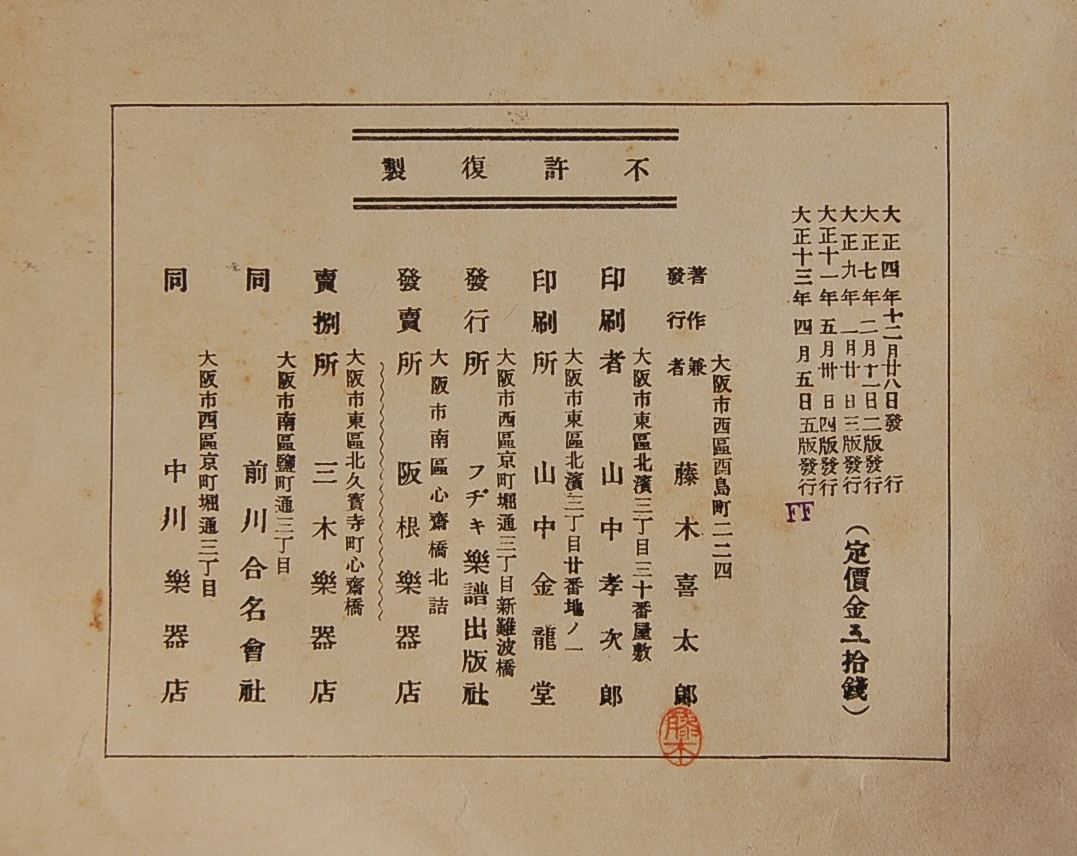 不許復製
大正四年十二月廿八日發行
大正七年二月十一日二版發行
大正九年一月廿日三版發行
大正十一年五月卅日四版發行
大正十三年四月五日五版發行
FF
(定價金五拾錢)
大阪市西區酉島町二二四
著作兼
發行者 藤木喜太郎
藤木
大阪市東區北濱三丁目三十番屋敷
印刷者 山中孝次郎
大阪市東區北濱三丁目廿番地ノ一
印刷所 山中金龍堂
大阪市西區京町堀通三丁目新難波橋
發行所 フヂキ樂譜出版社
大阪市南區心齋橋北詰
發賣所 阪根樂器店
大阪市東區北久寳寺町心齋橋
賣捌所 三木樂器店
大阪市南區鹽町通三丁目
同 前川合名會社
大阪市西區京町堀通三丁目
同 中川樂器店